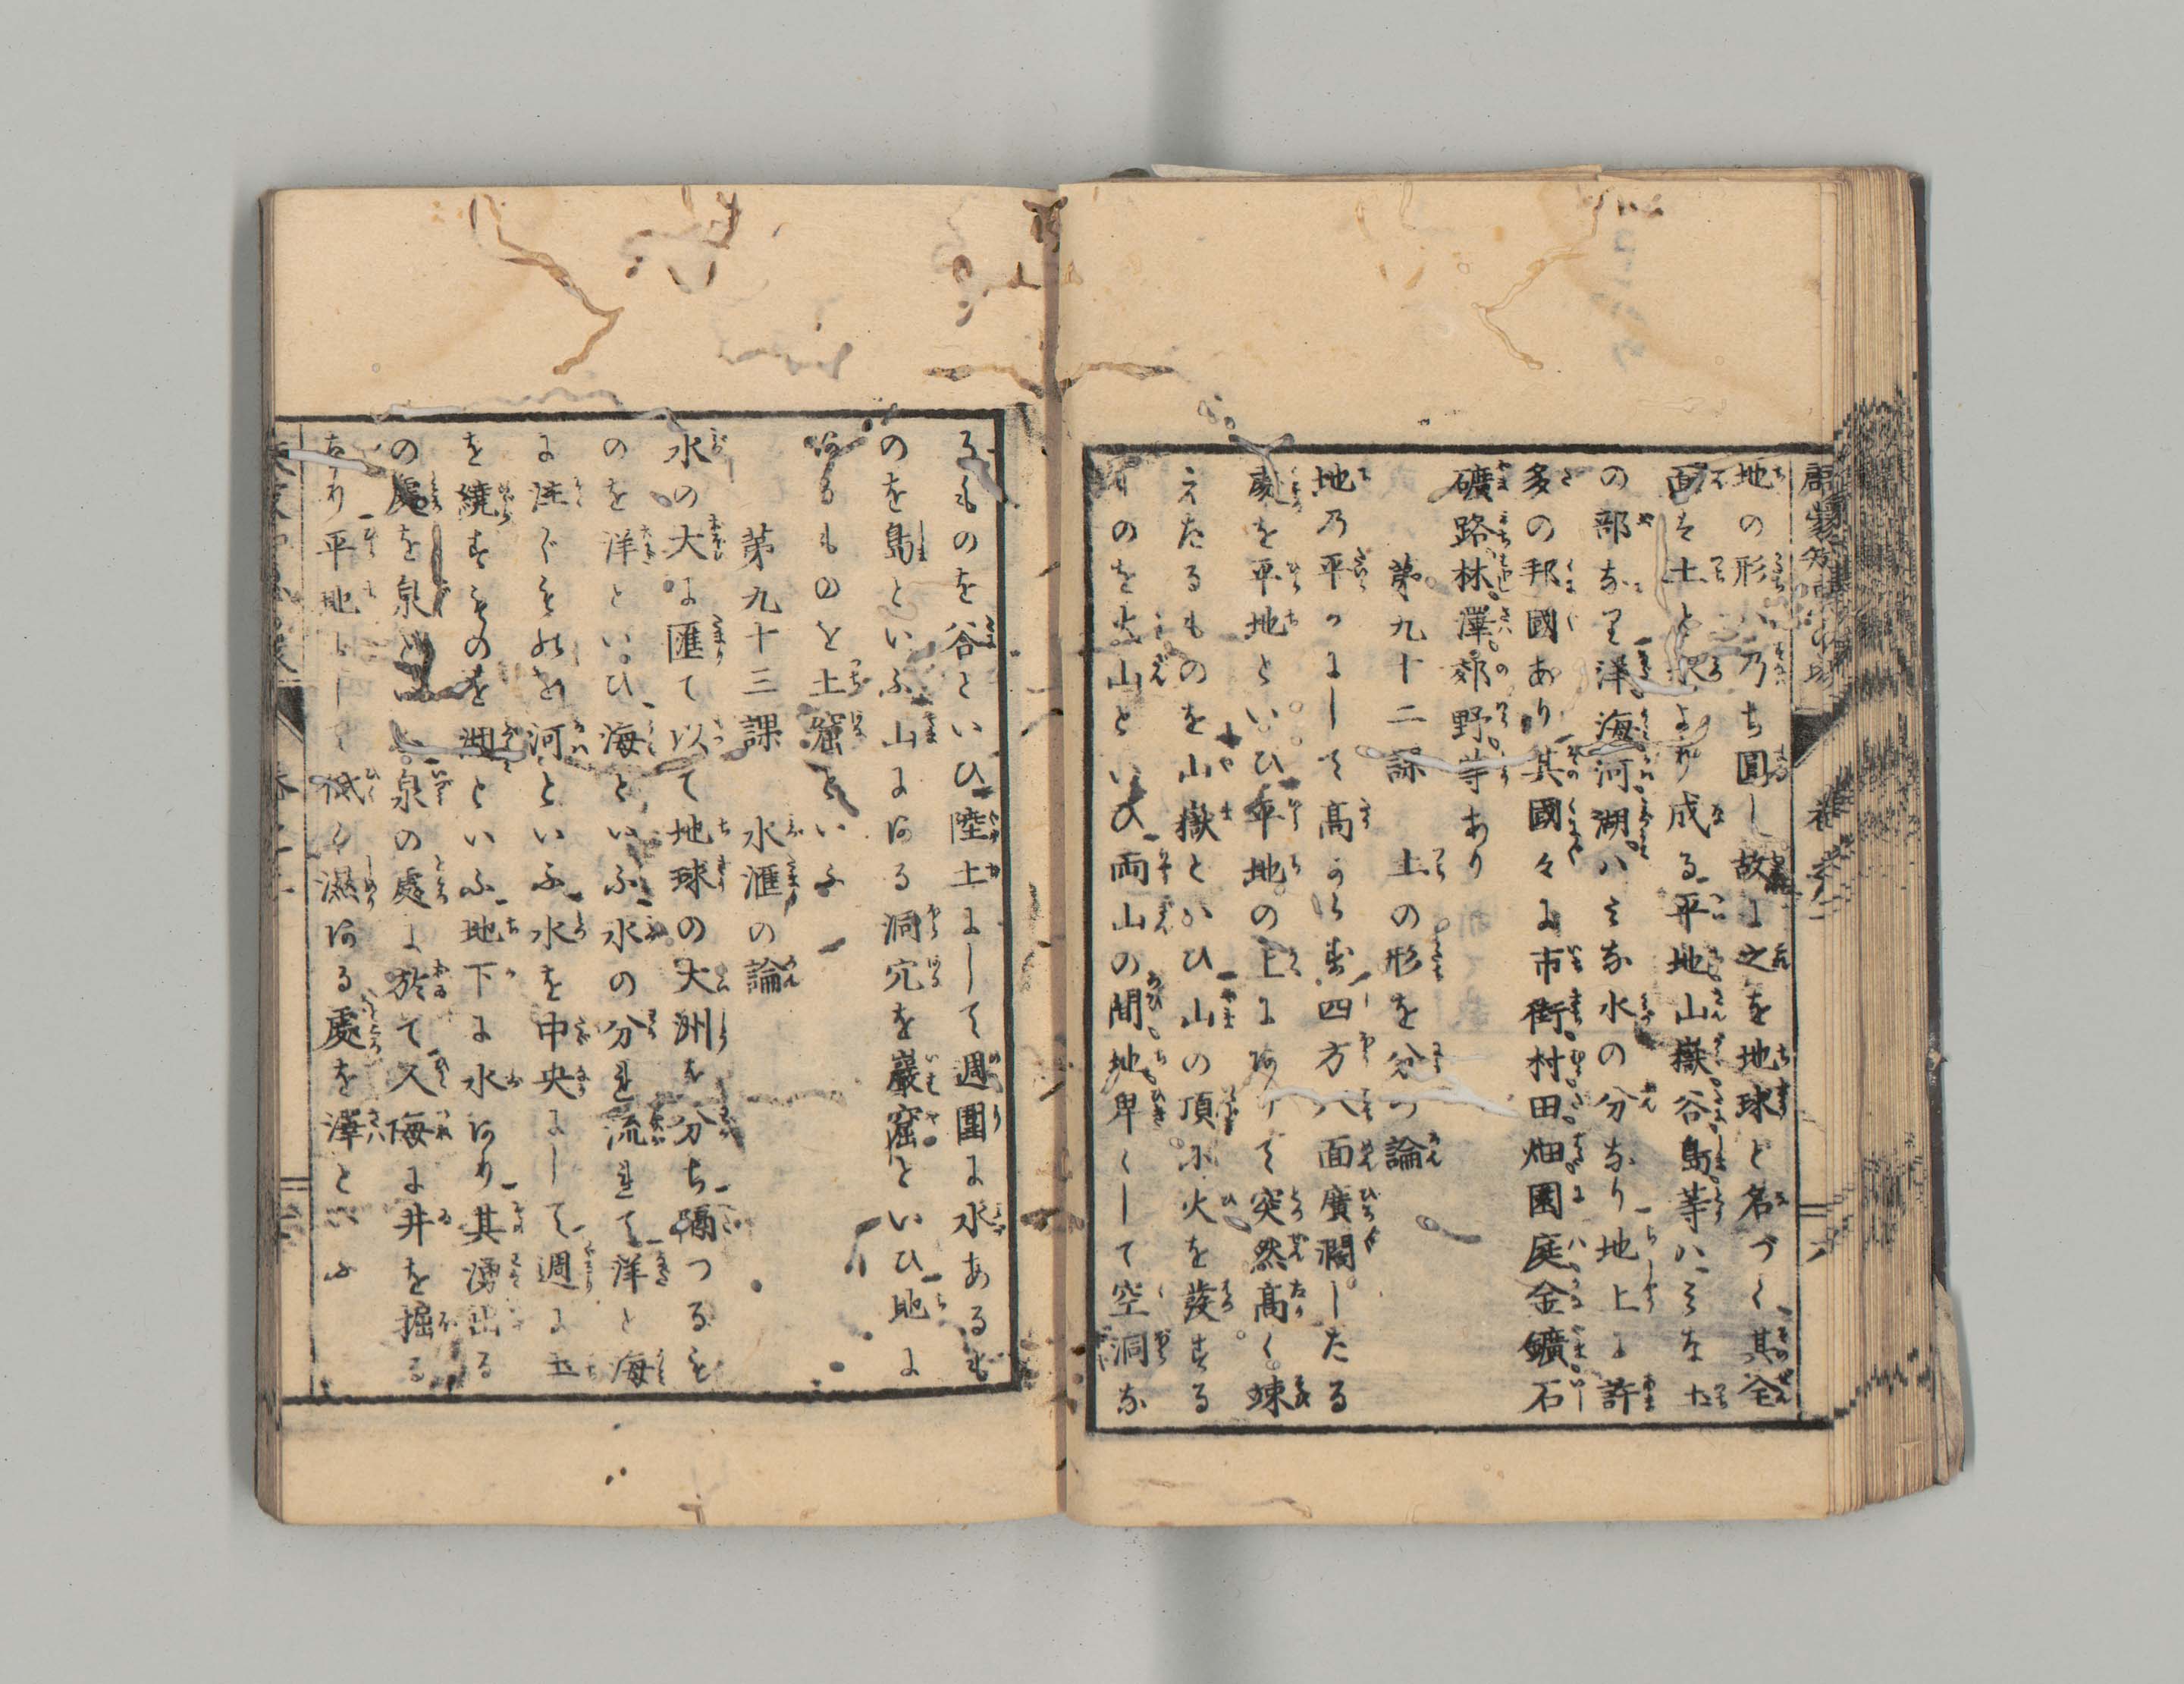 地の形ハ乃ち圓し故に之を地球と名づく其全
面は土と水より成る平地山嶽谷島等ハみな土
の部なり洋海河湖ハみな水の分なり地上に許
多の邦國あり其國々に市街村田畑園庭金鑛石
礦路林澤郊野等あり
第九十二課　土の形を分つ論
地乃平かにして高からず四方八面廣濶したる
處を平地といひ平地の上にありて突然高く竦
えたるものを山嶽といひ山の頂に火を發する
ものを火山といひ両山の間地卑くして空洞な
るものを谷といひ陸土にして週圍に水あるも
のを島といふ山にある洞穴を巖窟といひ地に
あるものを土窟といふ
第九十三課　水滙の論
水の大に匯て以て地球の大洲を分ち隔つるも
のを洋といひ海といふ水の分れ流れて洋と海
に注ぐものを河といふ水を中央にして週に土
を繞すものを湖といふ地下に水あり其湧出る
の處を泉といふ泉の處に於て人海に井を掘る
なり平地にして低く濕ある處を澤といふ